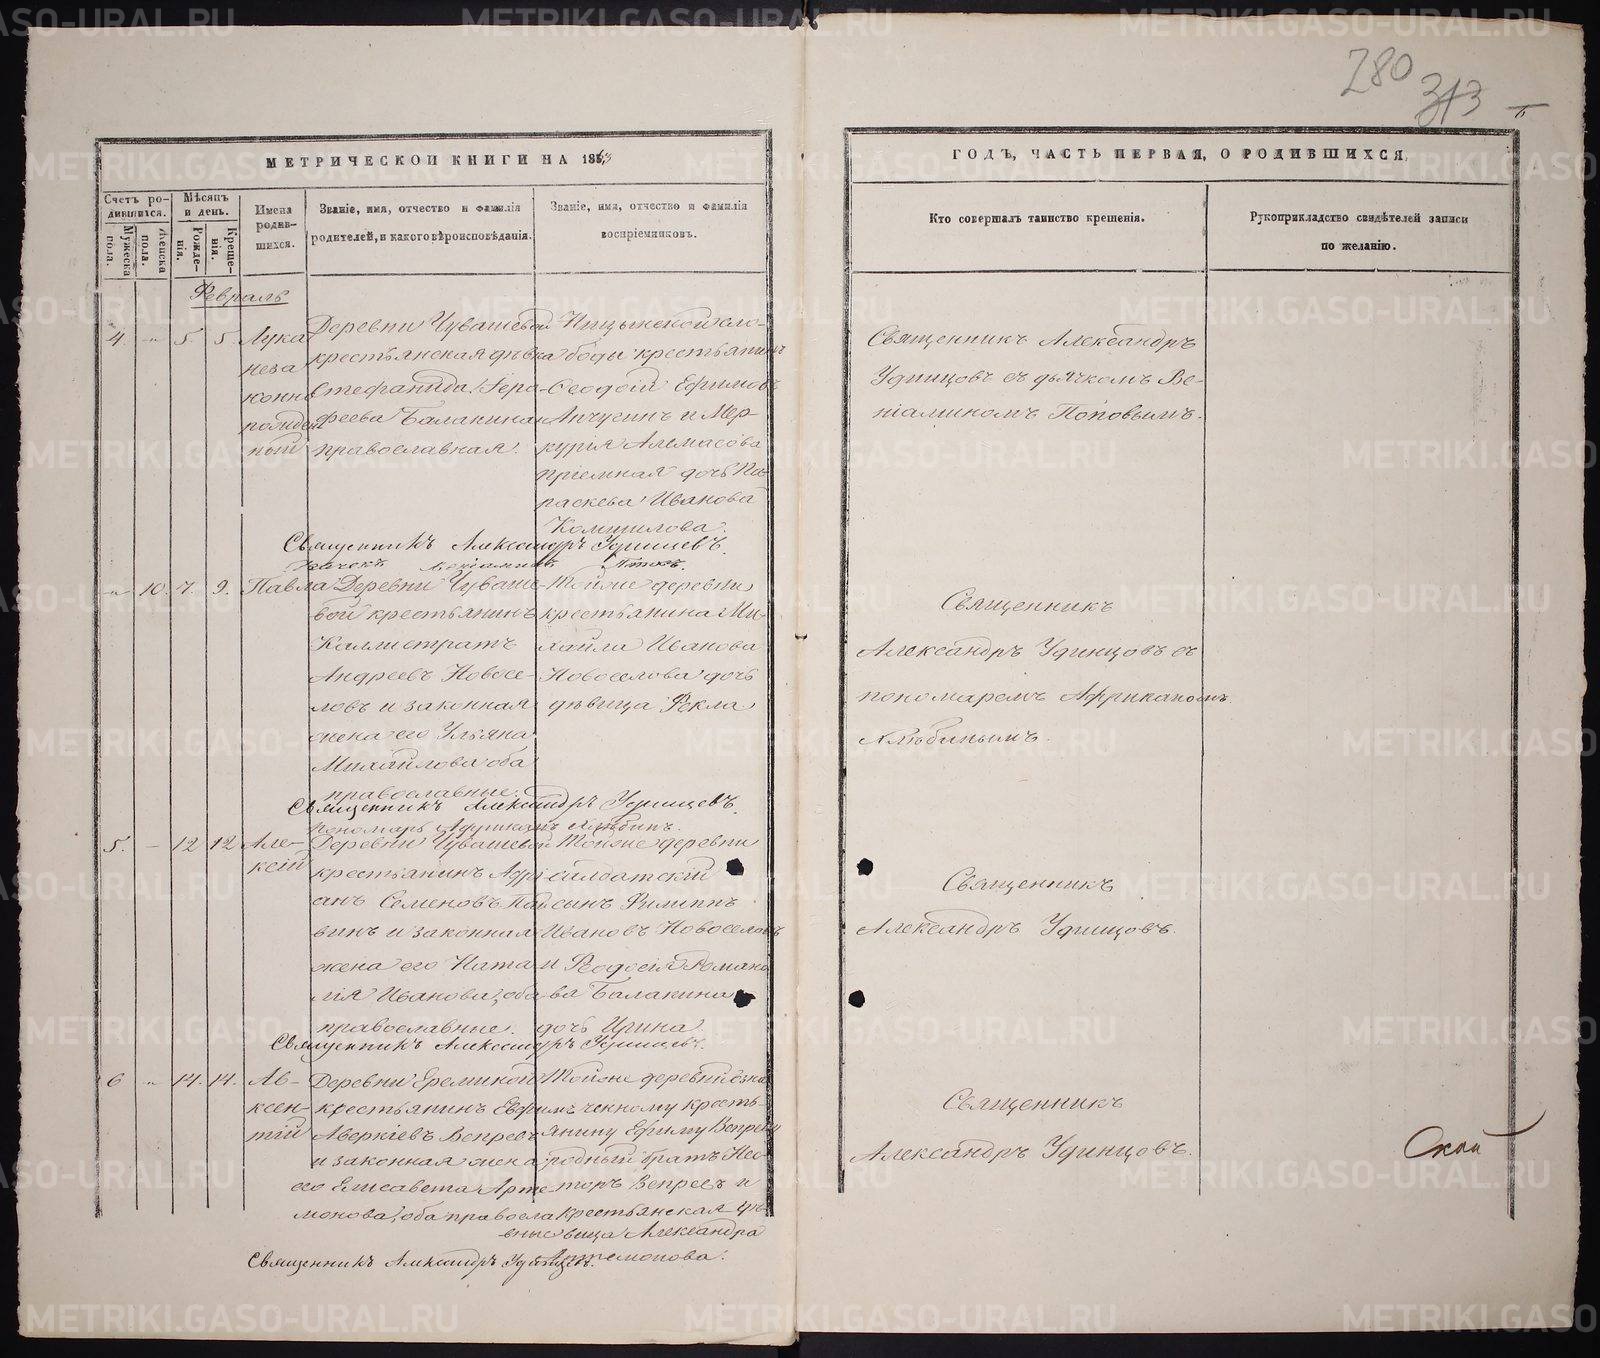 280
313
МЕТРИЧЕСКОЙ КНИГИ НА 1863
ГОДЪ, ЧАСТЬ ПЕРВАЯ, О РОДИВШИХСЯ.
Счетъ ро-
дившихся.
Мужеска
пола.
Женска
пола.
Мѣсяцъ
и день.
Рожде-
нія.
Креще-
нія.
Имена
родив-
шихся.
Званіе, имя, отчество и фамилія
родителей, и какого вѣроисповѣданія.
Званіе, имя, отчество и фамилія
воспріемниковъ.
Кто совершалъ таинство крещенія.
Рукоприкладство свидѣтелей записи
по желанію.
Февраль
4. - 5. 5.
Лука
неза
конно
рожден
ный
Деревни Чувашевой
крестьянская дѣвка
Стефанида Геро-
феева Балакина
православная.
Ницынской сло-
боды крестьянинъ
Ѳеодоій Ефимовъ
и Мер-
курія
пріемная дочь Па-
раскева Иванова
Священникъ Александръ
Удинцовъ съ дьячкомъ Ве-
ніаминомъ Поповымъ.
Священникъ Александръ Удинцевъ.
- 10. 7. 9.
Павла
Деревни Чуваше-
вой крестьянинъ
Каллистратъ
Андреевъ Новосе-
ловъ и законная
жена его Ульяна
Михайлова оба
православные.
Тойже деревни
крестьянина Ми-
хайла Иванова
Новоселова дочь
дѣвица Фекла
Священникъ
Александръ Удинцовъ съ
пономаремъ Африканомъ
Хлѣбинымъ.
Священникъ Александръ Удинцевъ.
Пономарь Африканъ Хлѣбинъ.
5. - 12 12
Але-
ксій
Деревни Чувашевой
крестьянинъ Адрі
анъ Семеновъ
и законная
жена его Ната
лія Иванова, оба
православные.
Тойже деревни
салдатскій
сынъ Филиппъ
Ивановъ Новоселовъ
и Ѳеодосія Романо
ва Балакина
дочь Ирина.
Священникъ
Александръ Удинцовъ.
Священникъ Александръ Удинцевъ.
6 - 14. 14.
Ав-
ксен-
тій
Деревни Ереминой
крестьянинъ Ефимъ
Аверкіевъ Вепревъ
и законная жена
его Елисавета Арте
монова, оба правосла
вные
Тойже деревни озна
ченному кресть-
янину Ефиму Вепреву
родный братъ Нес
торъ Вепревъ и
крестьянская дѣ-
вица Александра
Артемонова.
Священникъ
Александръ Удинцовъ.
Священникъ Александръ Удинцевъ.
METRIKI.GASO-URAL.RU